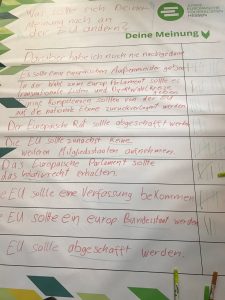 Was sollte sich Deiner
Meinung nach an
der EU ändern?
JUNGE
EUROPÄISCHE
FÖDERALISTEN
HESSEN
Deine Meinung
Darüber habe ich noch nie nachgedacht
Es sollte einen europäischen Außenminister geben
In der Wahl zum Europ. Parlament sollte es
transnationale Listen und Wahlkreise
Kompetenzen sollten von der EU
auf die nationale Ebene zurückverlagert werden
Der Europäische Rat sollte abgeschafft werden
Die EU sollte zunächst keine
weiteren Mitgliedsstaaten aufnehmen.
Das Europäische Parlament sollte
das Initiativrecht erhalten.
Die EU sollte eine Verfassung bekommen
Die EU sollte ein europ. Bundesstaat werden
Die EU sollte abgeschafft werden.